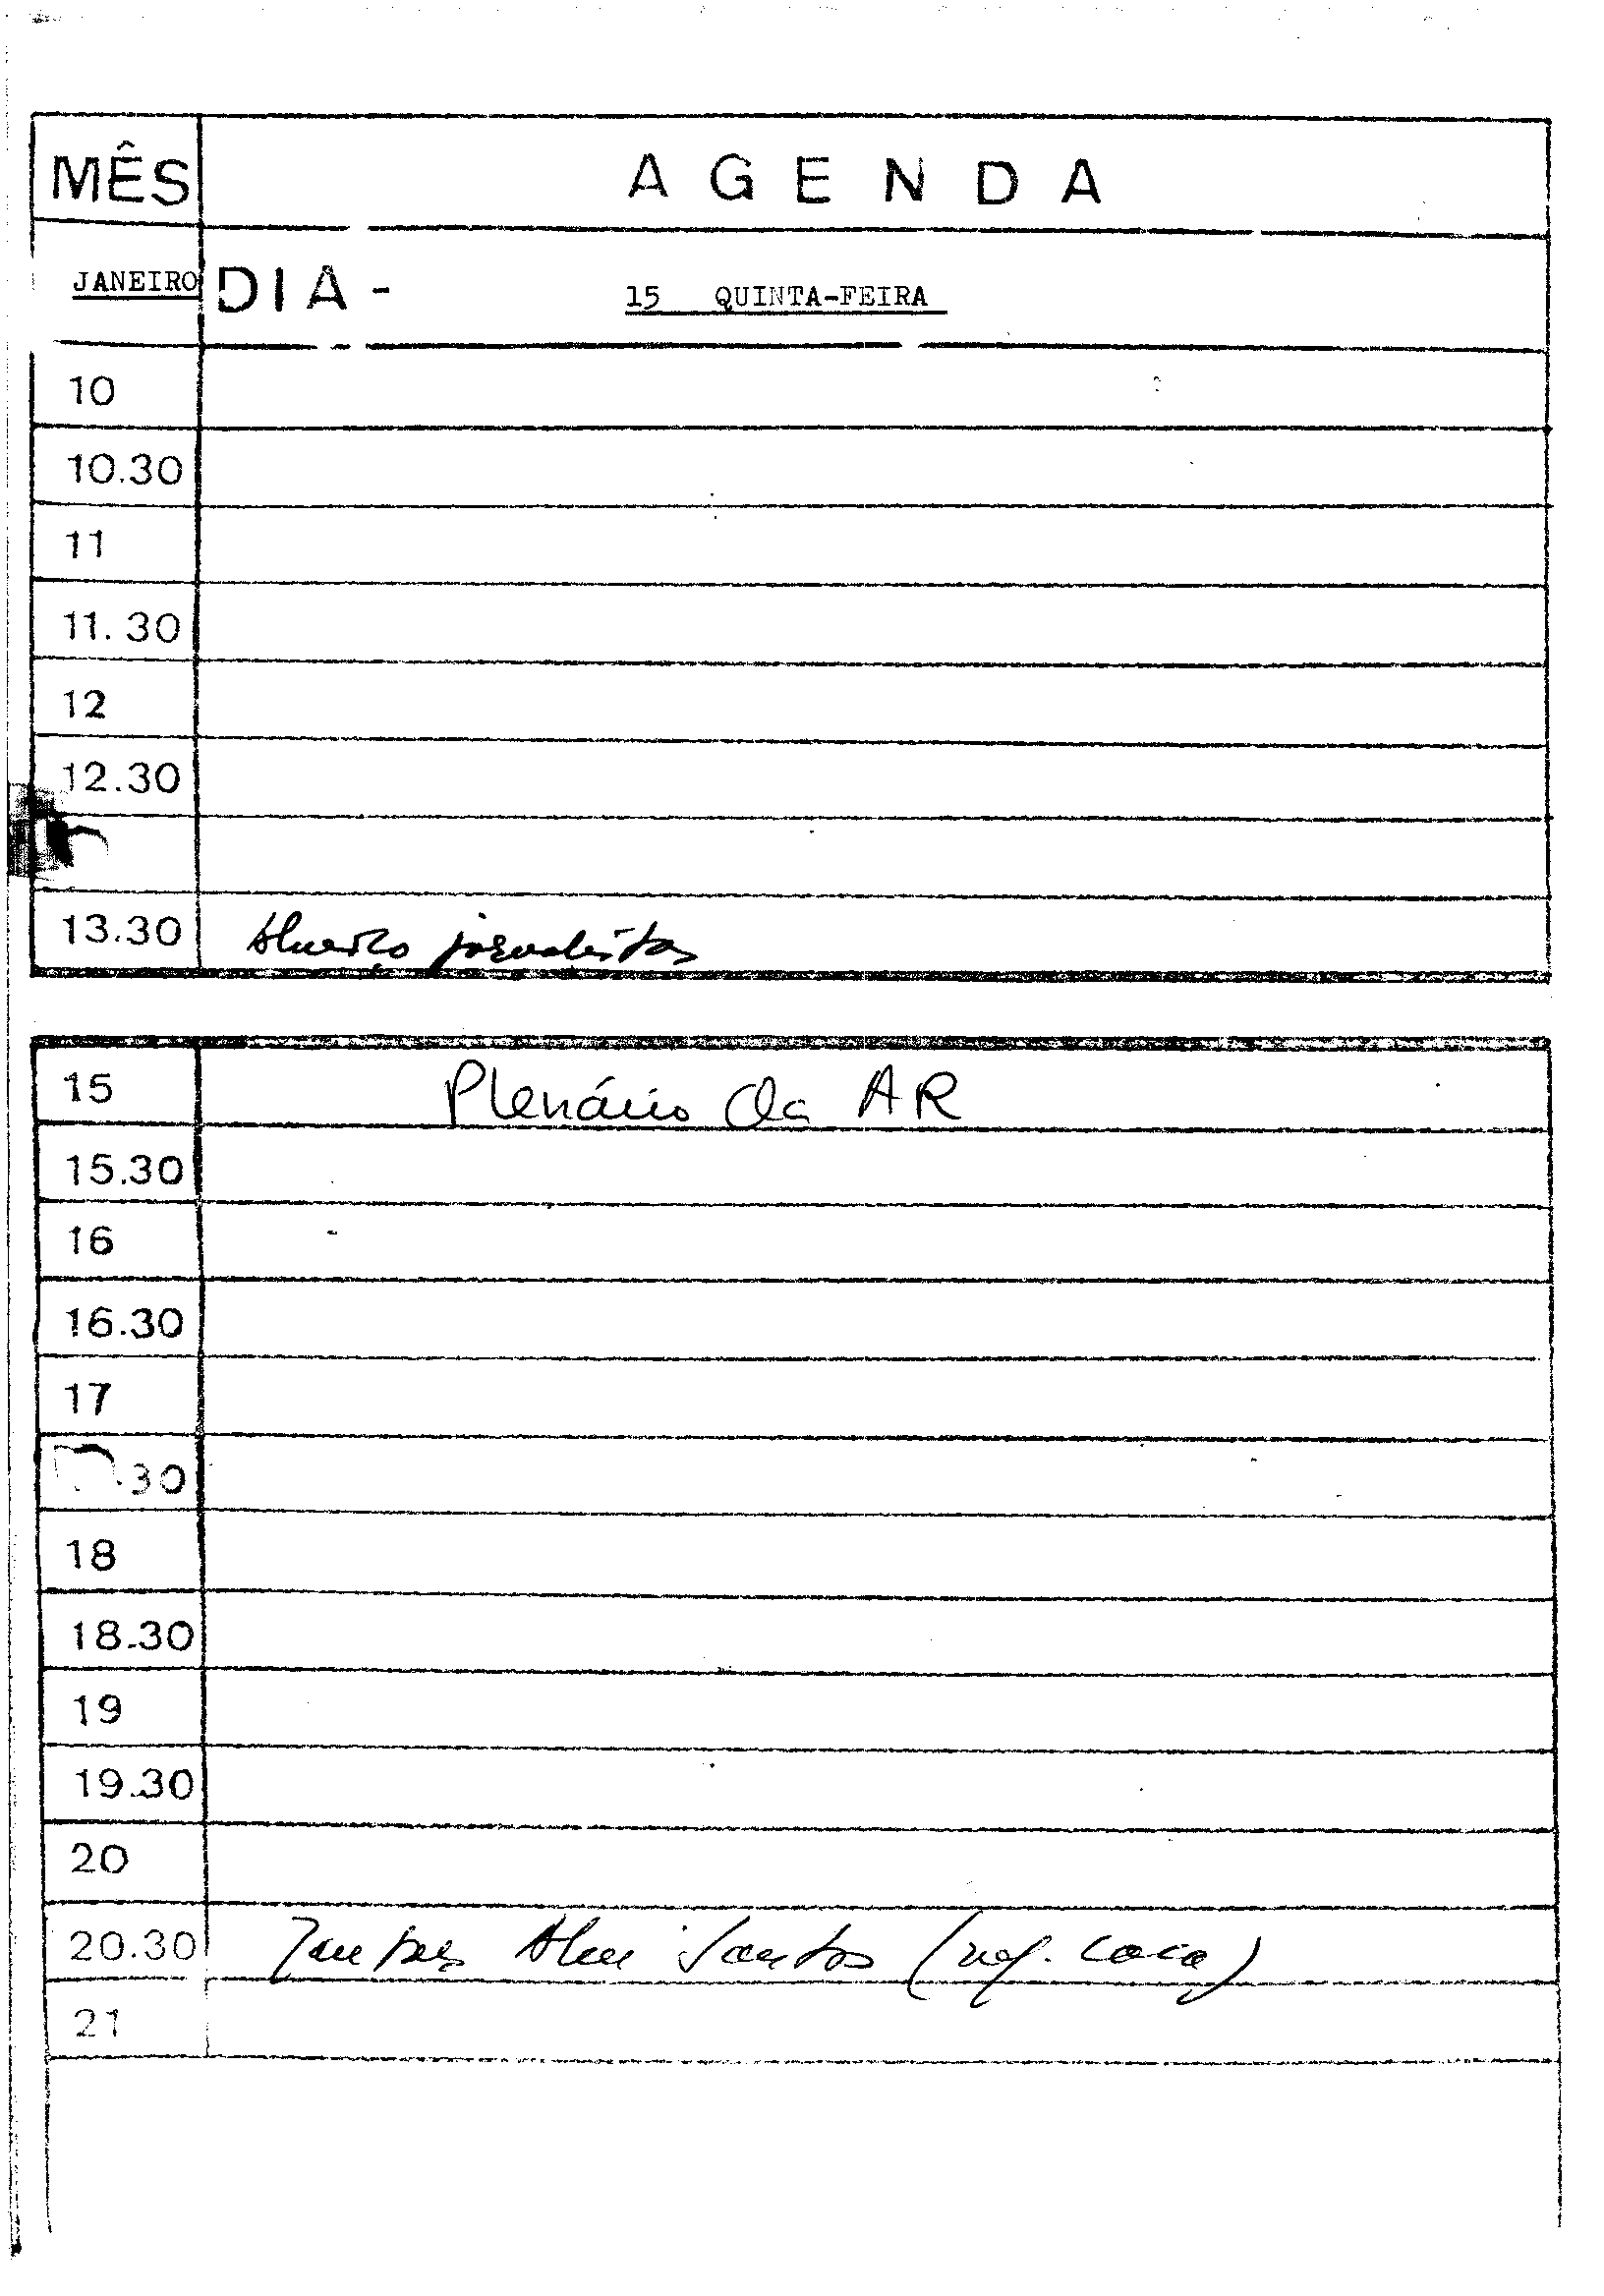 MÊS AGENDA
JANEIRO DIA - 15 QUINTA-FEIRA
10
10.30
11
11.30
12
12.30
13.30 Almoço jornalistas
15 Plenário da AR
15.30
16
16.30
17
.30
18
18.30
19
19.30
20
20.30 Jantar Alm Santos (
21